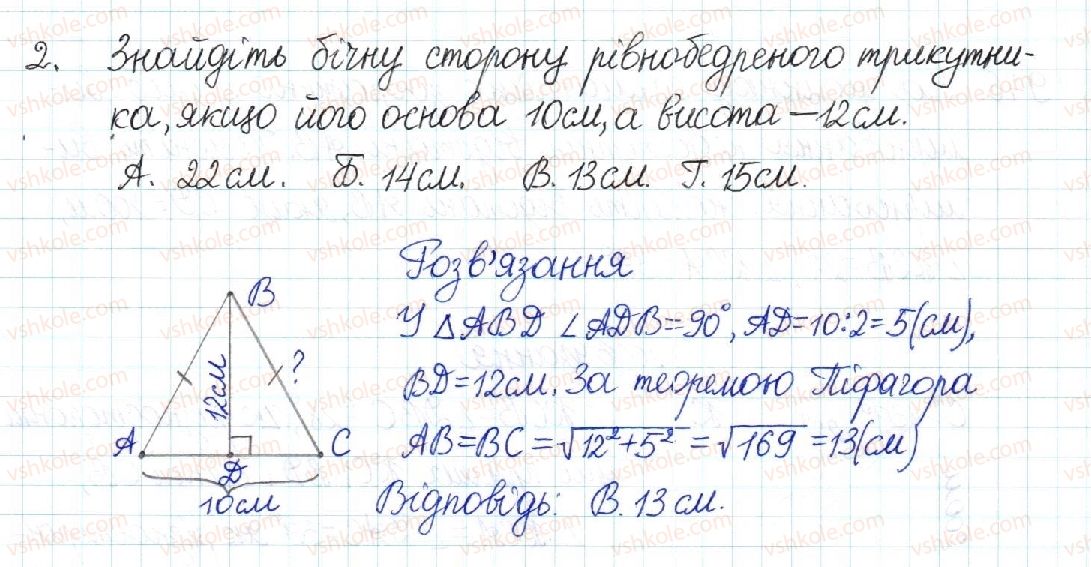 2. Знайдіть бічну сторону рівнобедреного трикутни-
ка, якщо його основа 10см, а висота – 12см.
А. 22см. Б. 14см. В. 13см. Г. 15см.
Розв'язання
У △ABD ∠ADB=90°, AD=10:2=5(см),
BD=12см. За теоремою Піфагора
AB=BC=√12²+5² = √169 =13(см)
Відповідь: В. 13см.
B
12см
?
A
D
C
10см
vshkole.com